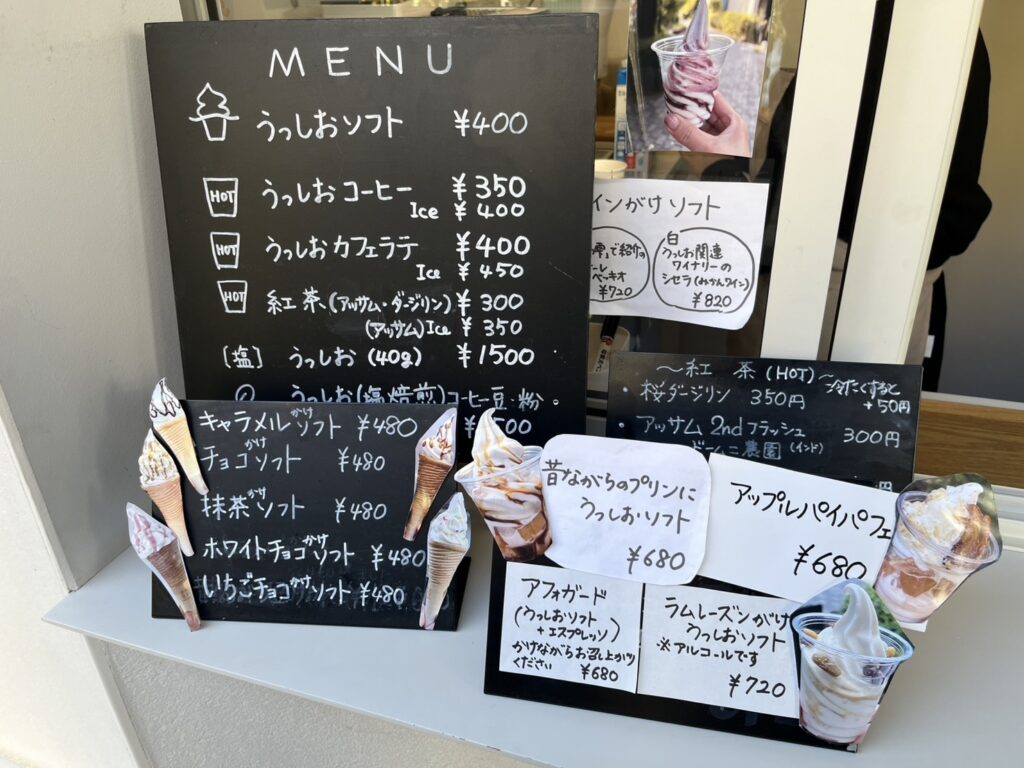 MENU
うっしおソフト ¥400
HOT うっしおコーヒー ¥350
Ice ¥400
HOT うっしおカフェラテ ¥400
Ice ¥450
HOT 紅茶(アッサム・ダージリン) ¥300
(アッサム)Ice ¥350
[塩] うっしお(40g) ¥1500
うっしお(塩焙煎)コーヒー豆・粉
キャラメルかけソフト ¥480
チョコかけソフト ¥480
抹茶かけソフト ¥480
ホワイトチョコかけソフト ¥480
いちごチョコかけソフト ¥480
インがけソフト
で紹介の
ーレ
ベーキオ
¥720
白
うっしお関連
ワイナリーの
シセラ(みかんワイン)
¥820
〜紅茶(HOT)〜
冷たくすると
+50円
・桜ダージリン 350円
・アッサム 2ndフラッシュ 300円
農園(インド)
円
昔ながらのプリンに
うっしおソフト
¥680
アップルパイパフェ
¥680
アフォガード
(うっしおソフト
+エスプレッソ)
かけながらお召し上がり
ください
¥680
ラムレーズンがけ
うっしおソフト
※アルコールです
¥720